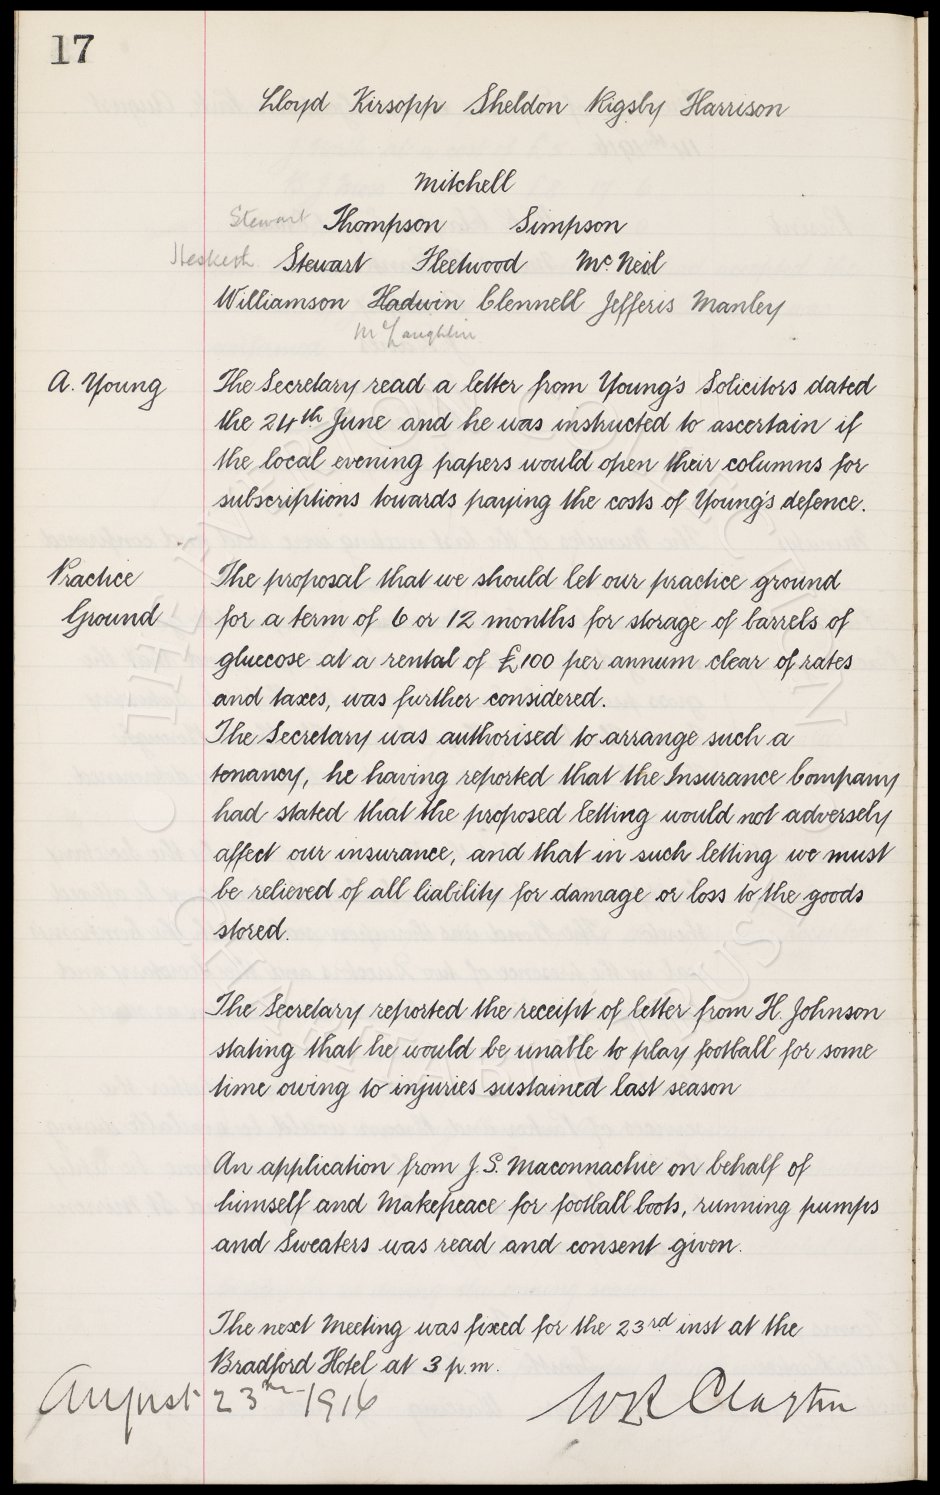 17
Lloyd Kirsopp Sheldon Rigsby Harrison
Mitchell
Stewart Thompson Simpson
Hesketh Stewart Fleetwood McNeil
Williamson Hadwin Clennell Jefferis Manley
McLaughlin
A. Young The Secretary read a letter from Young's Solicitors dated
the 24th June and he was instructed to ascertain if
the local evening papers would open their columns for
subscriptions towards paying the costs of Young's defence.
Practice The proposal that we should let our practice ground
Ground for a term of 6 or 12 months for storage of barrels of
gluccose at a rental of £100 per annum clear of rates
and taxes, was further considered.
The Secretary was authorised to arrange such a
tenancy, he having reported that the Insurance Company
had stated that the proposed letting would not adversely
affect our insurance, and that in such letting we must
be relieved of all liability for damage or loss to the goods
stored.
The Secretary reported the receipt of letter from H. Johnson
stating that he would be unable to play football for some
time owing to injuries sustained last season
An application from J. S. Maconnachie on behalf of
himself and Makepeace for football boots, running pumps
and Sweaters was read and consent given.
The next Meeting was fixed for the 23rd inst at the
Bradford Hotel at 3 p.m.
August 23rd 1916 W R Clayton